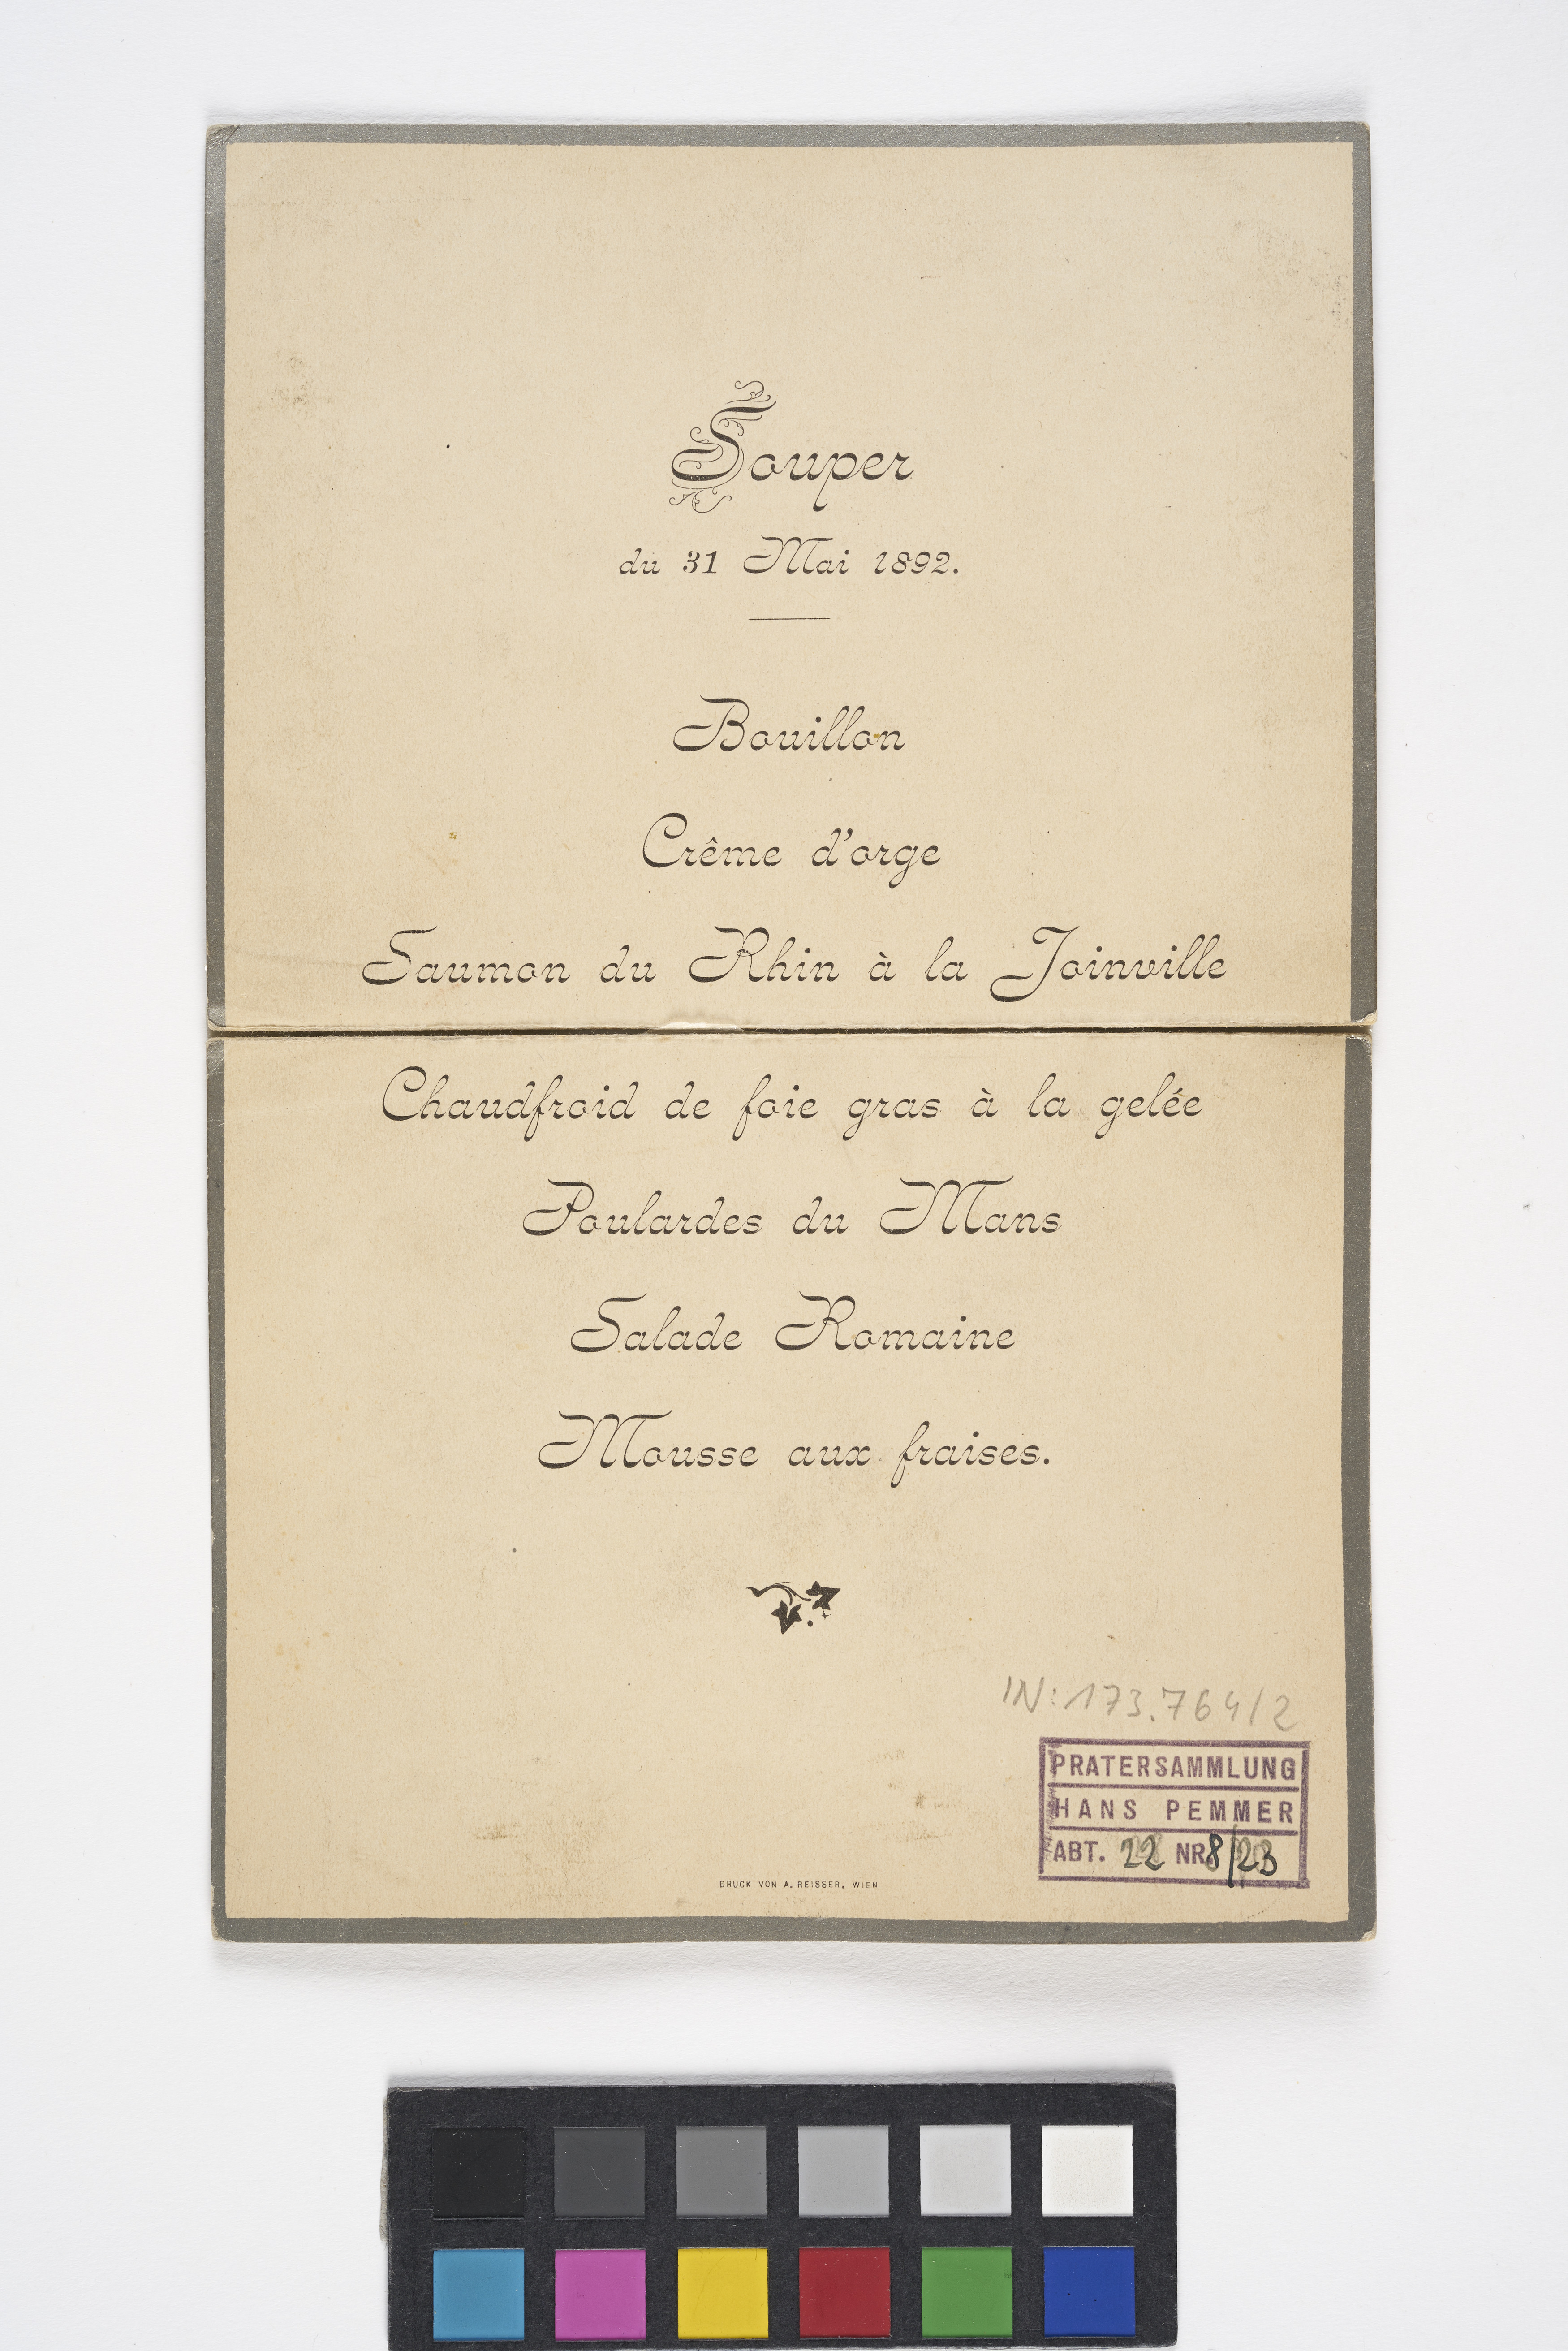 Souper
du 31 Mai 1892.
Bouillon
Crême d'orge
Saumon du Rhin à la Joinville
Chaudfroid de foie gras à la gelée
Poulardes du Mans
Salade Romaine
Mousse aux fraises.
IN: 173.764/2
PRATERSAMMLUNG
HANS PEMMER
ABT. 22 NR. 8/23
DRUCK VON A. REISSER, WIEN